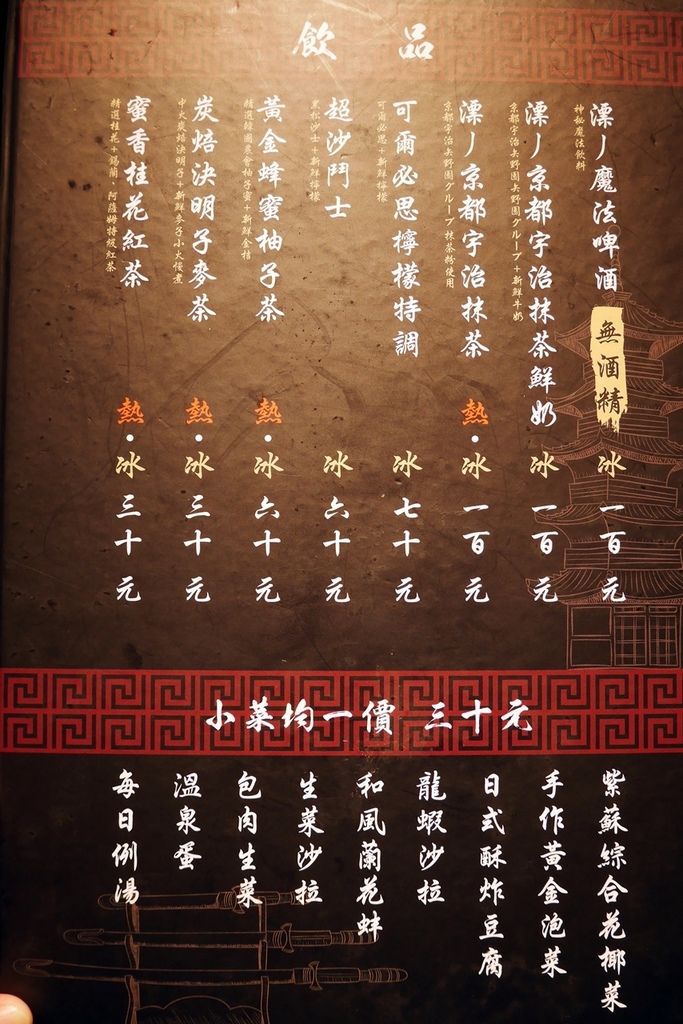 飲品
漂丿魔法啤酒 無酒精 冰 一百元
神秘魔法飲料
漂丿京都宇治抹茶鮮奶 冰 一百元
京都宇治矢野園グループ+新鮮牛奶
漂丿京都宇治抹茶 熱・冰 一百元
京都宇治矢野園グループ抹茶粉使用
可爾必思檸檬特調 冰 七十元
可爾必思+新鮮檸檬
超沙鬥士 冰 六十元
黑松沙士+新鮮檸檬
黃金蜂蜜柚子茶 熱・冰 六十元
精選韓國農會柚子蜜+新鮮金桔
炭焙決明子麥茶 熱・冰 三十元
中火炭焙決明子+新鮮麥子小火慢煮
蜜香桂花紅茶 熱・冰 三十元
精選桂花+錫蘭、阿薩姆特級紅茶
小菜均一價 三十元
紫蘇綜合花椰菜
手作黃金泡菜
日式酥炸豆腐
龍蝦沙拉
和風蘭花蚌
生菜沙拉
包肉生菜
溫泉蛋
每日例湯